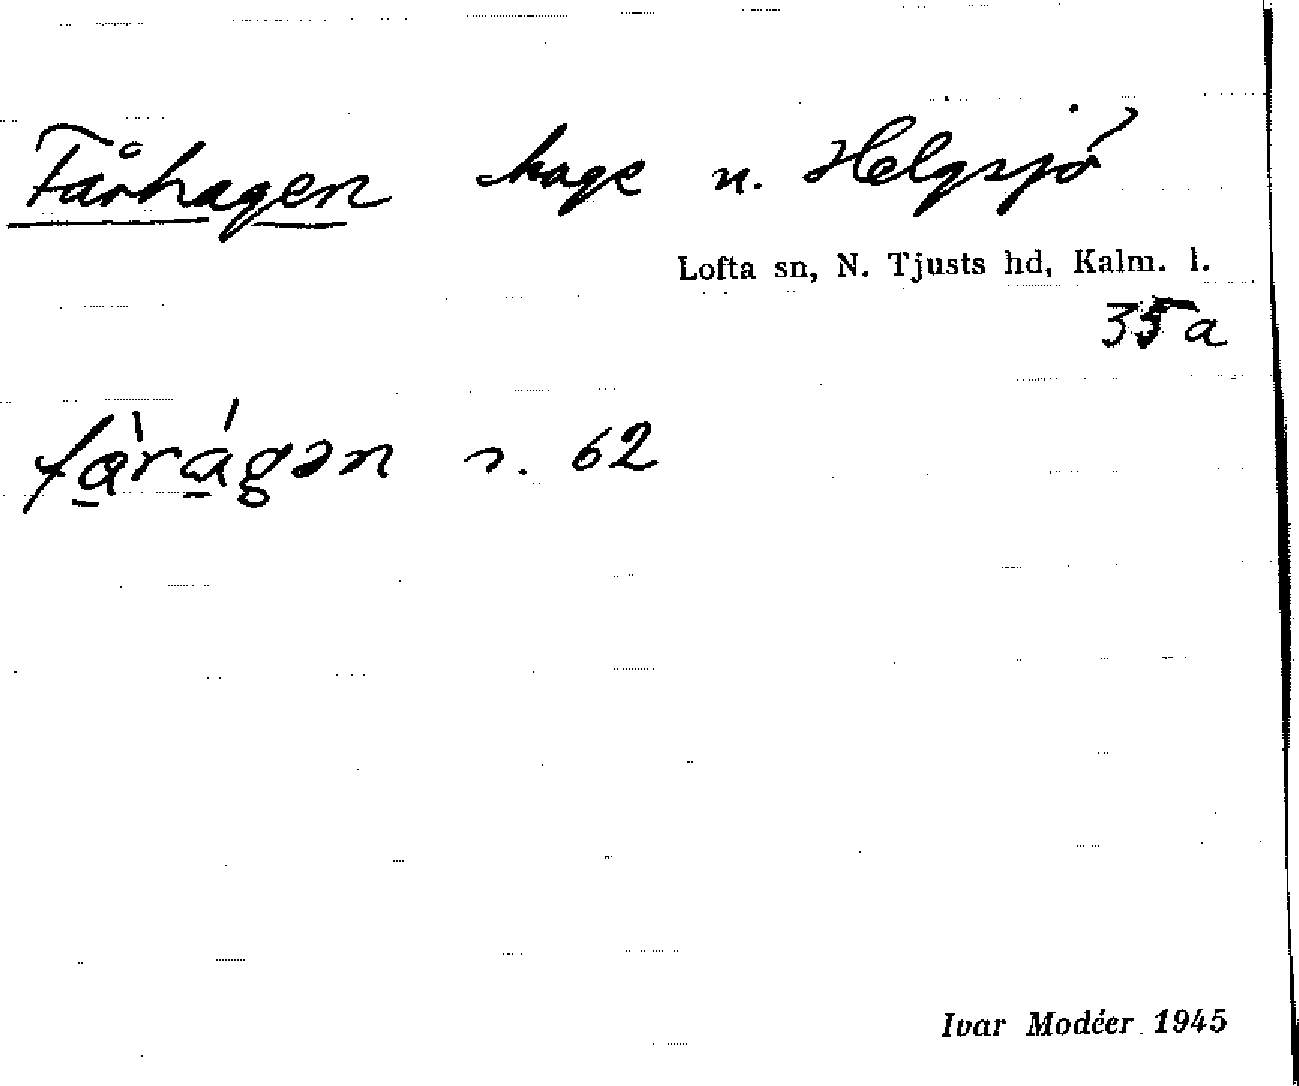 Fårhagen hage n. Helgsjö
Lofta sn, N. Tjusts hd, Kalm. l.
35a
fà̲rá̲gən s. 62
Ivar Modéer 1945